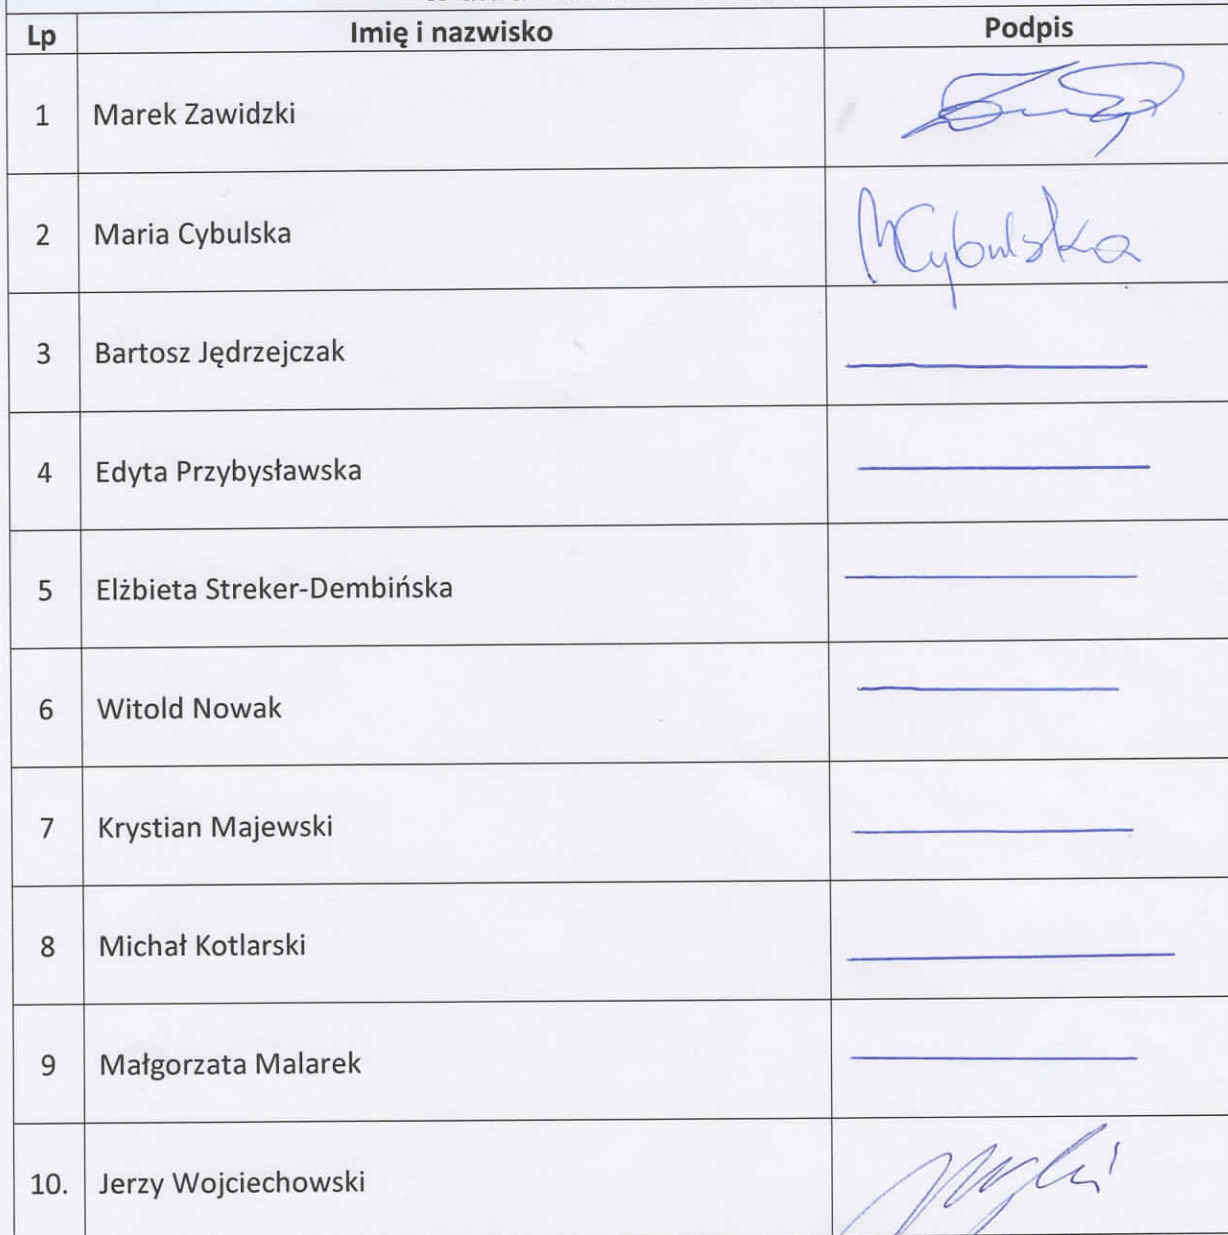 Lp Imię i nazwisko Podpis
1 Marek Zawidzki
2 Maria Cybulska MCybulska
3 Bartosz Jędrzejczak
4 Edyta Przybysławska
5 Elżbieta Streker-Dembińska
6 Witold Nowak
7 Krystian Majewski
8 Michał Kotlarski
9 Małgorzata Malarek
10. Jerzy Wojciechowski